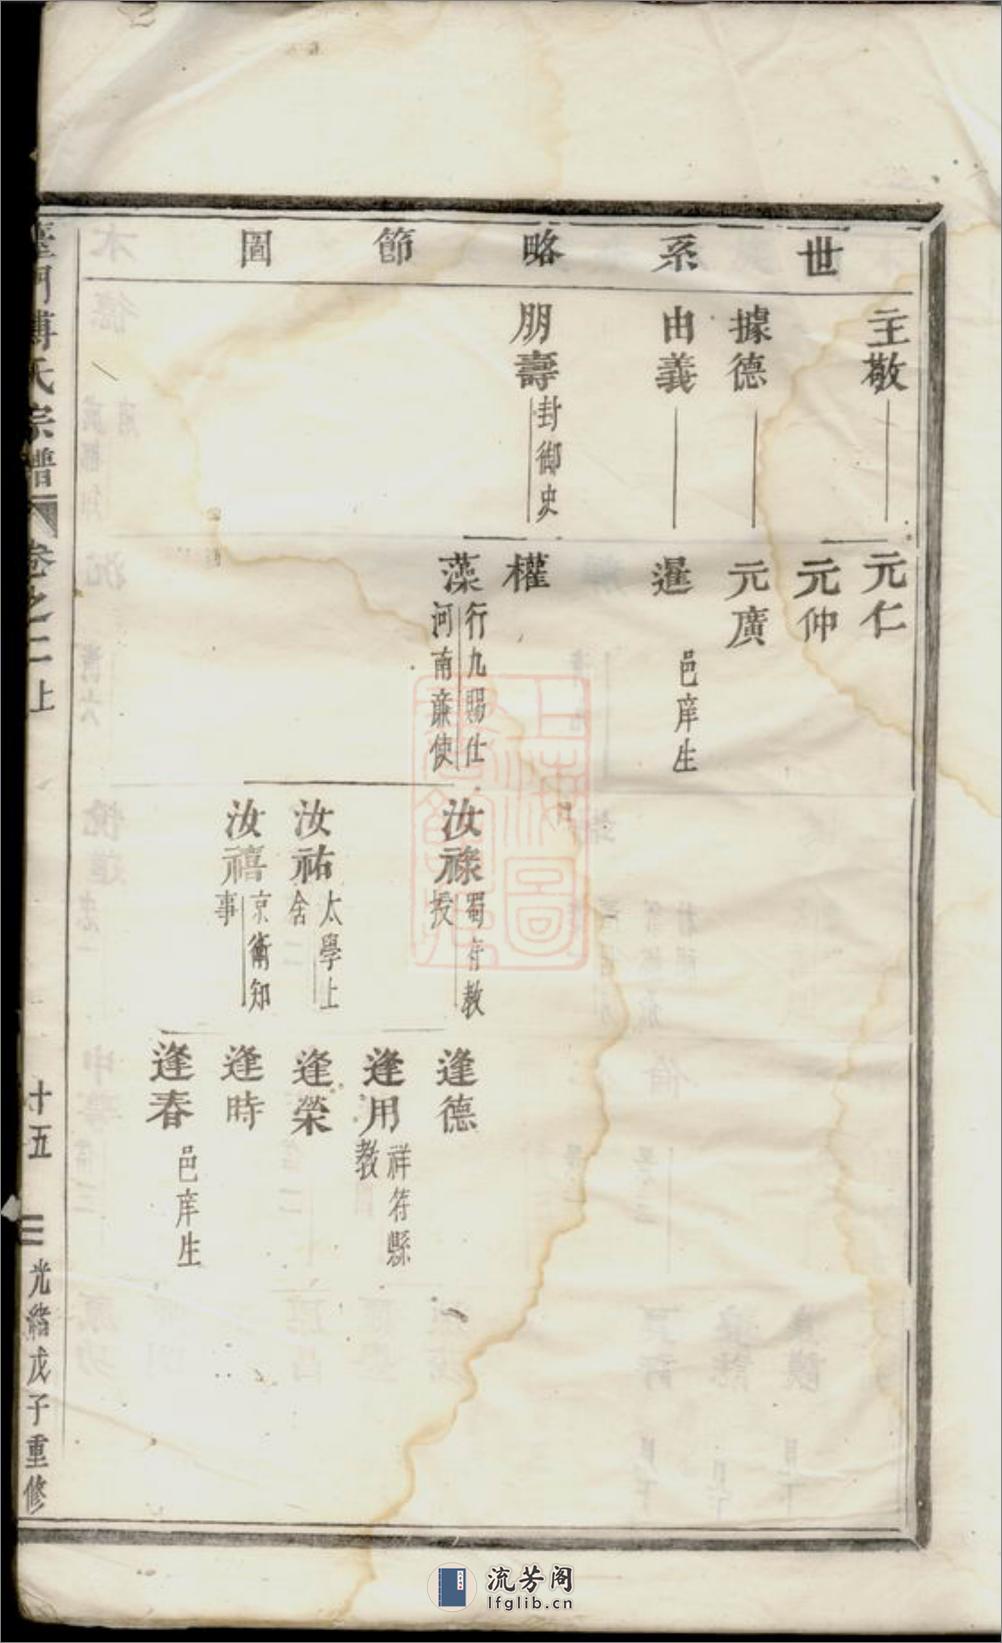 世系略節圖
主敬
據德
由義
朋壽 封御史
元仁
元仲
元廣
暹 邑庠生
權
藻 行九賜仕河南廉使
汝祿 蜀府教授
汝祐 太學上舍
汝禧 京衛知事
逢德
逢用 祥符縣教
逢榮
逢時
逢春 邑庠生
傅氏宗譜 卷之二上 十五 光緒戊子重修
上海圖書館藏
流芳阁
lfglib.cn